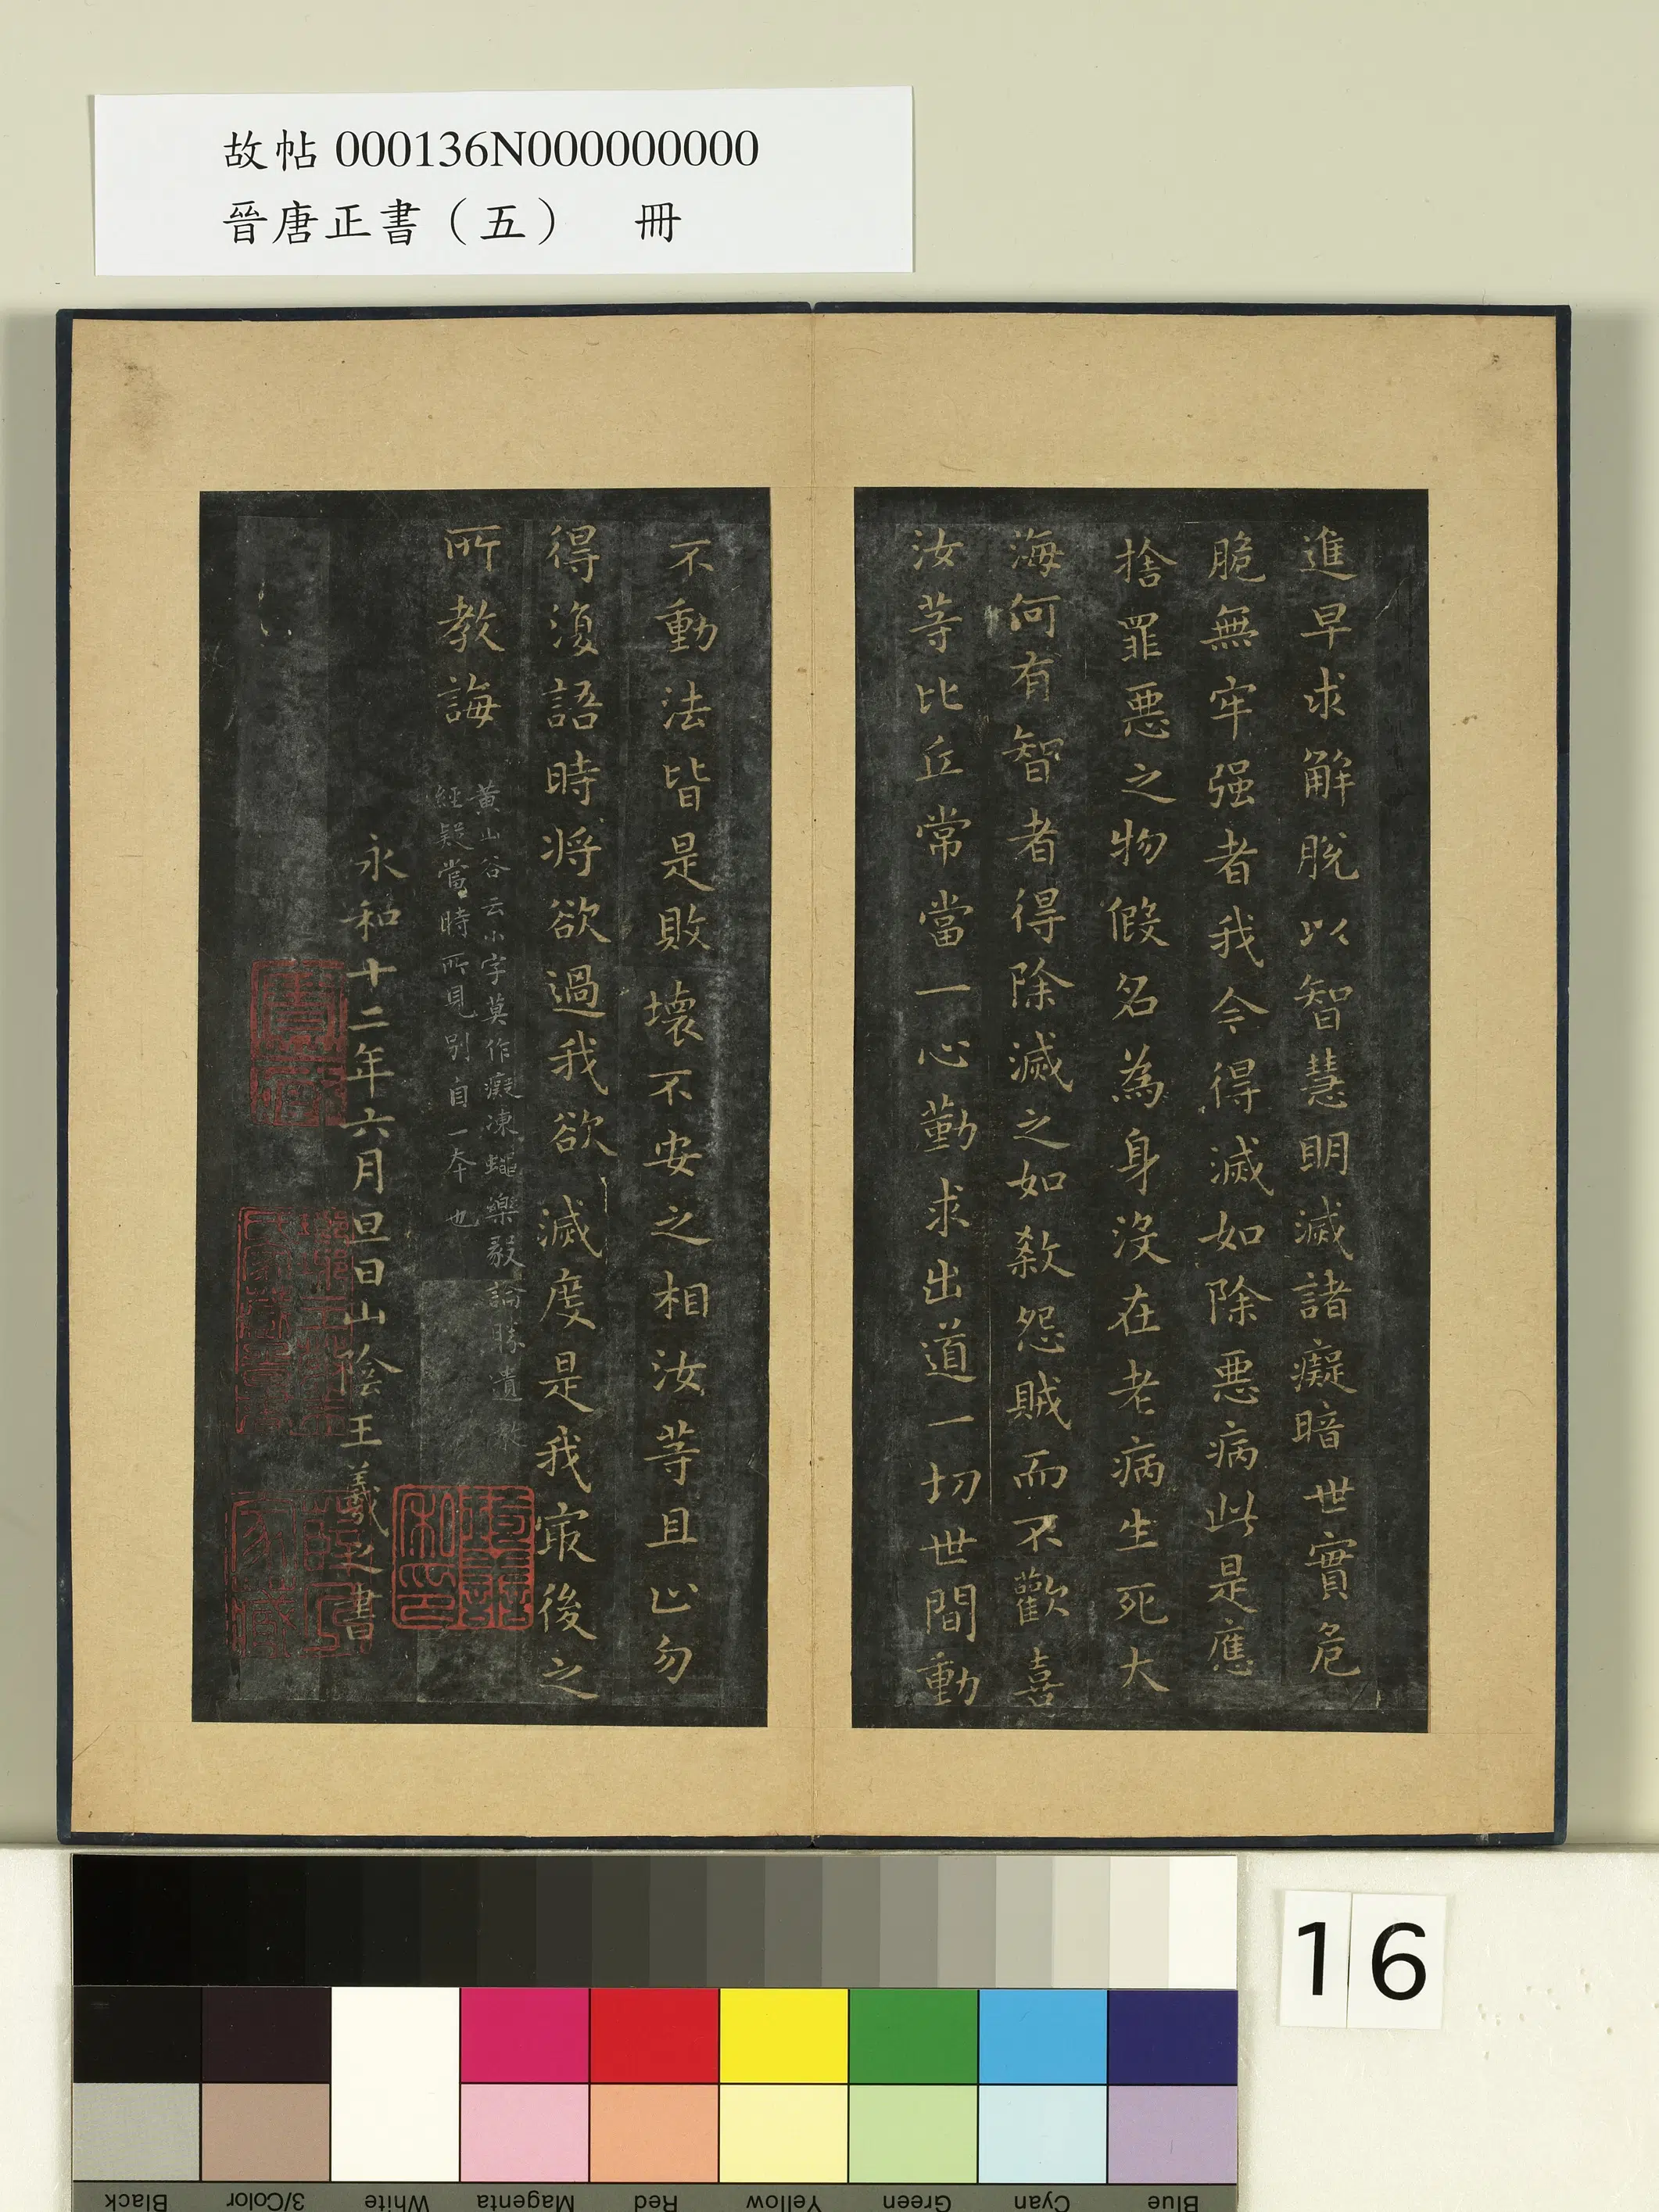 故帖 000136N000000000
晉唐正書（五）　冊
進早求解脫以智慧明滅諸癡暗世實危
脆無牢强者我今得滅如除惡病此是應
捨罪惡之物假名為身沒在老病生死大
海何有智者得除滅之如殺怨賊而不歡喜
汝等比丘常當一心勤求出道一切世間動
不動法皆是敗壞不安之相汝等且止勿
得復語時將欲過我欲滅度是我最後之
所教誨
黃山谷云小字莫作癡凍蠅樂毅論勝遺教
經疑當時所見別自一本也
永和十二年六月旦日山陰王羲之書
16
Black
3/Color
White
Magenta
Red
Yellow
Green
Cyan
Blue